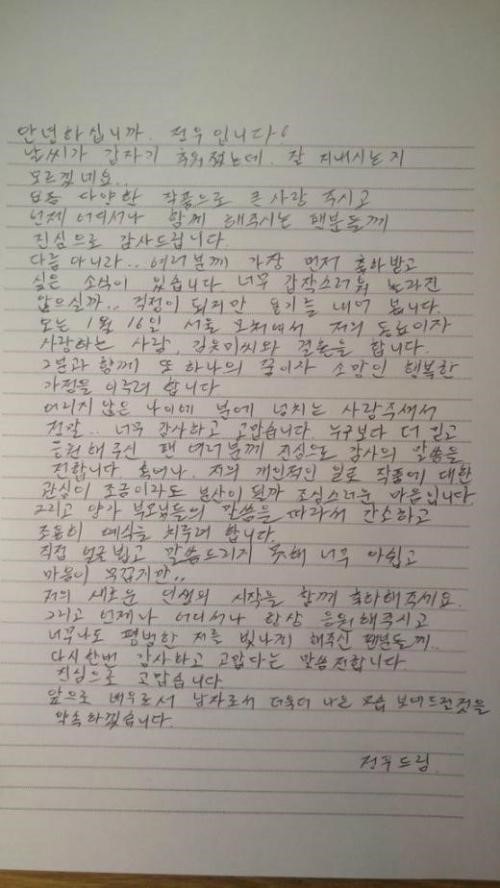 안녕하십니까. 전우입니다
날씨가 갑자기 추워졌는데. 잘 지내시는지
모르겠네요..
요즘 다양한 작품으로 큰 사랑 주시고
언제 어디서나 함께 해주시는 팬분들께
진심으로 감사드립니다.
다름 아니라.. 여러분께 가장 먼저 축하받고
싶은 소식이 있습니다 너무 갑작스러워 놀라진
않으실까.. 걱정이 되지만 용기를 내어 봅니다.
오는 1월 16일 서울 모처에서 저의 동료이자
사랑하는 사람, 김윷미씨와 결혼을 합니다.
그분과 함께 또 하나의 꿈이자 소망인 행복한
가정을 이루려 합니다
어리지 않은 나이에 분에 넘치는 사랑주셔서
정말.. 너무 감사하고 고맙습니다. 누구보다 더 믿고
응원해 주신 팬 여러분께 진심으로 감사의 말씀을
전합니다 혹여나. 저의 개인적인 일로 작품에 대한
관심이 조금이라도 분산이 될까 조심스러운 마음입니다
그리고 양가 부모님들의 말씀을 따라서 간소하고
조용히 예식을 치루려 합니다.
직접 얼굴뵙고 말씀드리지 못해 너무 아쉽고
마음이 무겁지만..
저의 새로운 인생의 시작을 함께 축하해주세요.
그리고 언제나 어디서나 항상 응원해주시고
너무나도 평범한 저를 빛나게 해주신 팬분들께..
다시한번 감사하고 고맙다는 말씀전합니다
진심으로 고맙습니다.
앞으로 배우로서 남자로서 더욱더 나은 모습 보여드릴것을
약속하겠습니다.
드림.